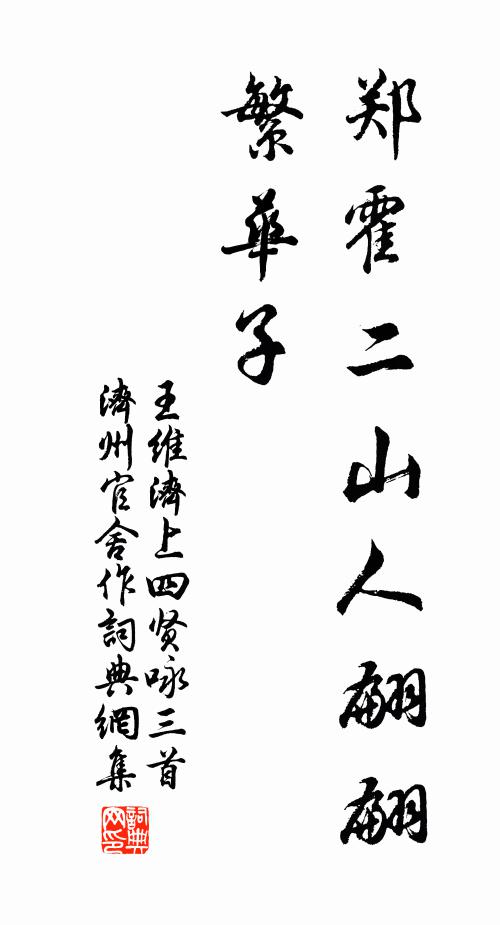 郑霍二山人翩翩
繁華子
王维濟上四贤咏三首
濟州官舍作詞典網集
詞典网印